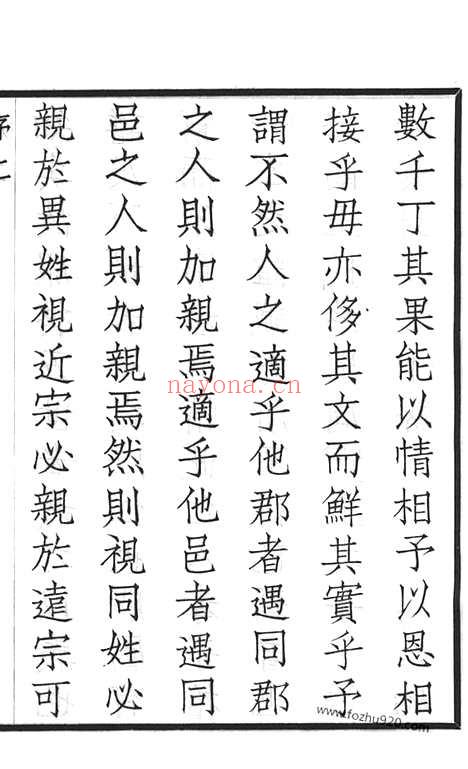 數千丁其果能以情相予以恩相
接乎毋亦侈其文而鮮其實乎予
謂不然人之適乎他郡者遇同郡
之人則加親焉適乎他邑者遇同
邑之人則加親焉然則視同姓必
親於異姓視近宗必親於遠宗可
序二
nayona.cn
www.fozhu920.com